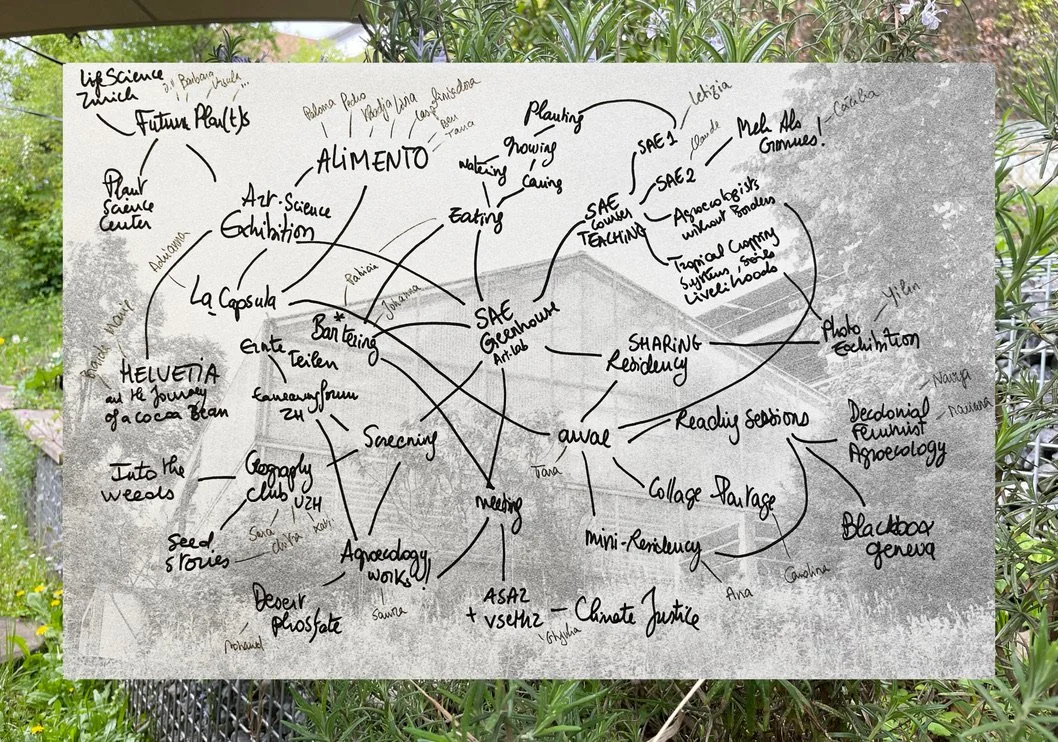 Life Science
Zürich
Barbara
Ursula...
Future Plan(t)s
Plant
Science
Center
Art-Science
Exhibition
Adrianna
La Capsula
HELVETIA
and the Journey
of a cocoa Bean
Marie
Paloma
Pedro
Lina
Ben
Tara
ALIMENTO
Planting
Growing
Watering
Caring
Eating
SAE
Greenhouse
Art-lab
Patricia
Johanna
Bartering
*
Ernte
Teilen
Ernährungsforum
ZH
Screening
Geography
Club UZH
Into the
weeds
Sara
Seed
stories
Agroecology
works!
Samira
Desert
phosfate
meeting
+
Climate Justice
SAE
Courses
TEACHING
SAE 1
Letizia
SAE 2
Claude
Meh Als
Gmües!
Agroecologists
without Borders
Tropical Cropping
Systems, Soils
Livelihoods
Yilin
Photo
Exhibition
SHARING
Residency
awal
Tara
Reading Sessions
Decolonial
Feminist
Agroecology
Blackbox
geneva
Collage Partage
Carolina
mini-Residency
Ana